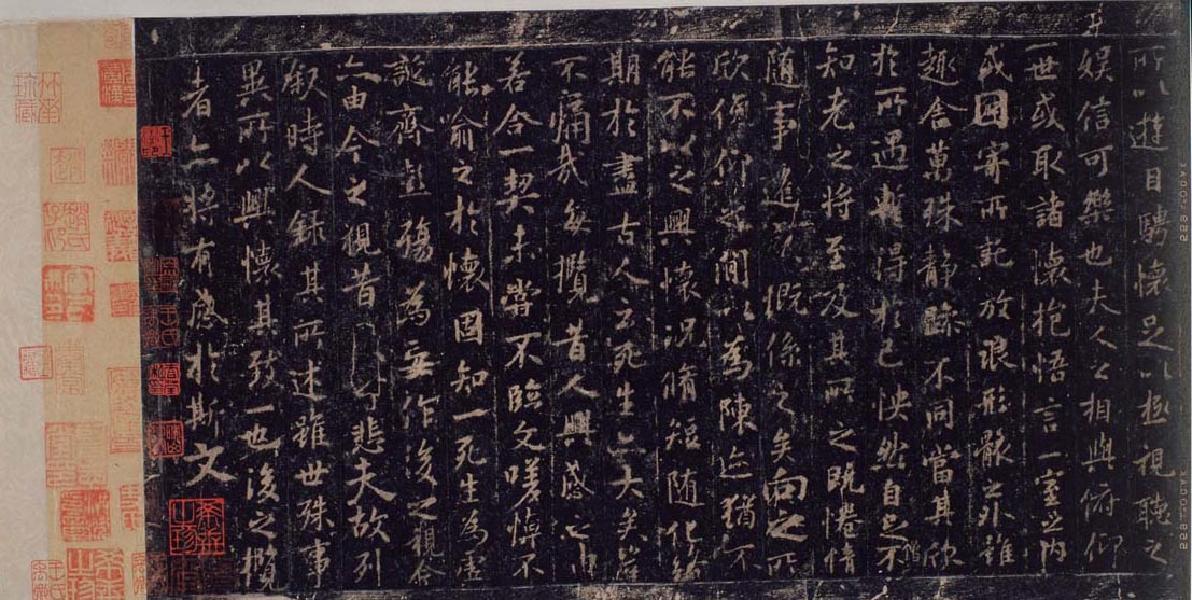 所以遊目騁懷足以極視聽之
娛信可樂也夫人之相與俯仰
一世或取諸懷抱悟言一室之內
或因寄所託放浪形骸之外雖
趣舍萬殊靜躁不同當其欣
於所遇暫得於己怏然自足不
知老之將至及其所之既惓情
隨事遷感慨係之矣向之所
欣俛仰之間以為陳迹猶不
能不以之興懷況脩短隨化終
期於盡古人云死生亦大矣豈
不痛哉每攬昔人興感之由
若合一契未嘗不臨文嗟悼不
能喻之於懷固知一死生為虛
誕齊彭殤為妄作後之視今
亦由今之視昔悲夫故列
叙時人錄其所述雖世殊事
異所以興懷其致一也後之攬
者亦將有感於斯文